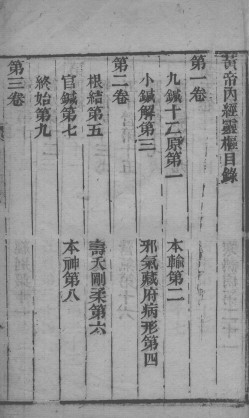 黃帝內經靈樞目錄
第一卷
九鍼十二原第一
本輸第二
小鍼解第三
邪氣藏府病形第四
第二卷
根結第五
壽夭剛柔第六
官鍼第七
本神第八
終始第九
第三卷